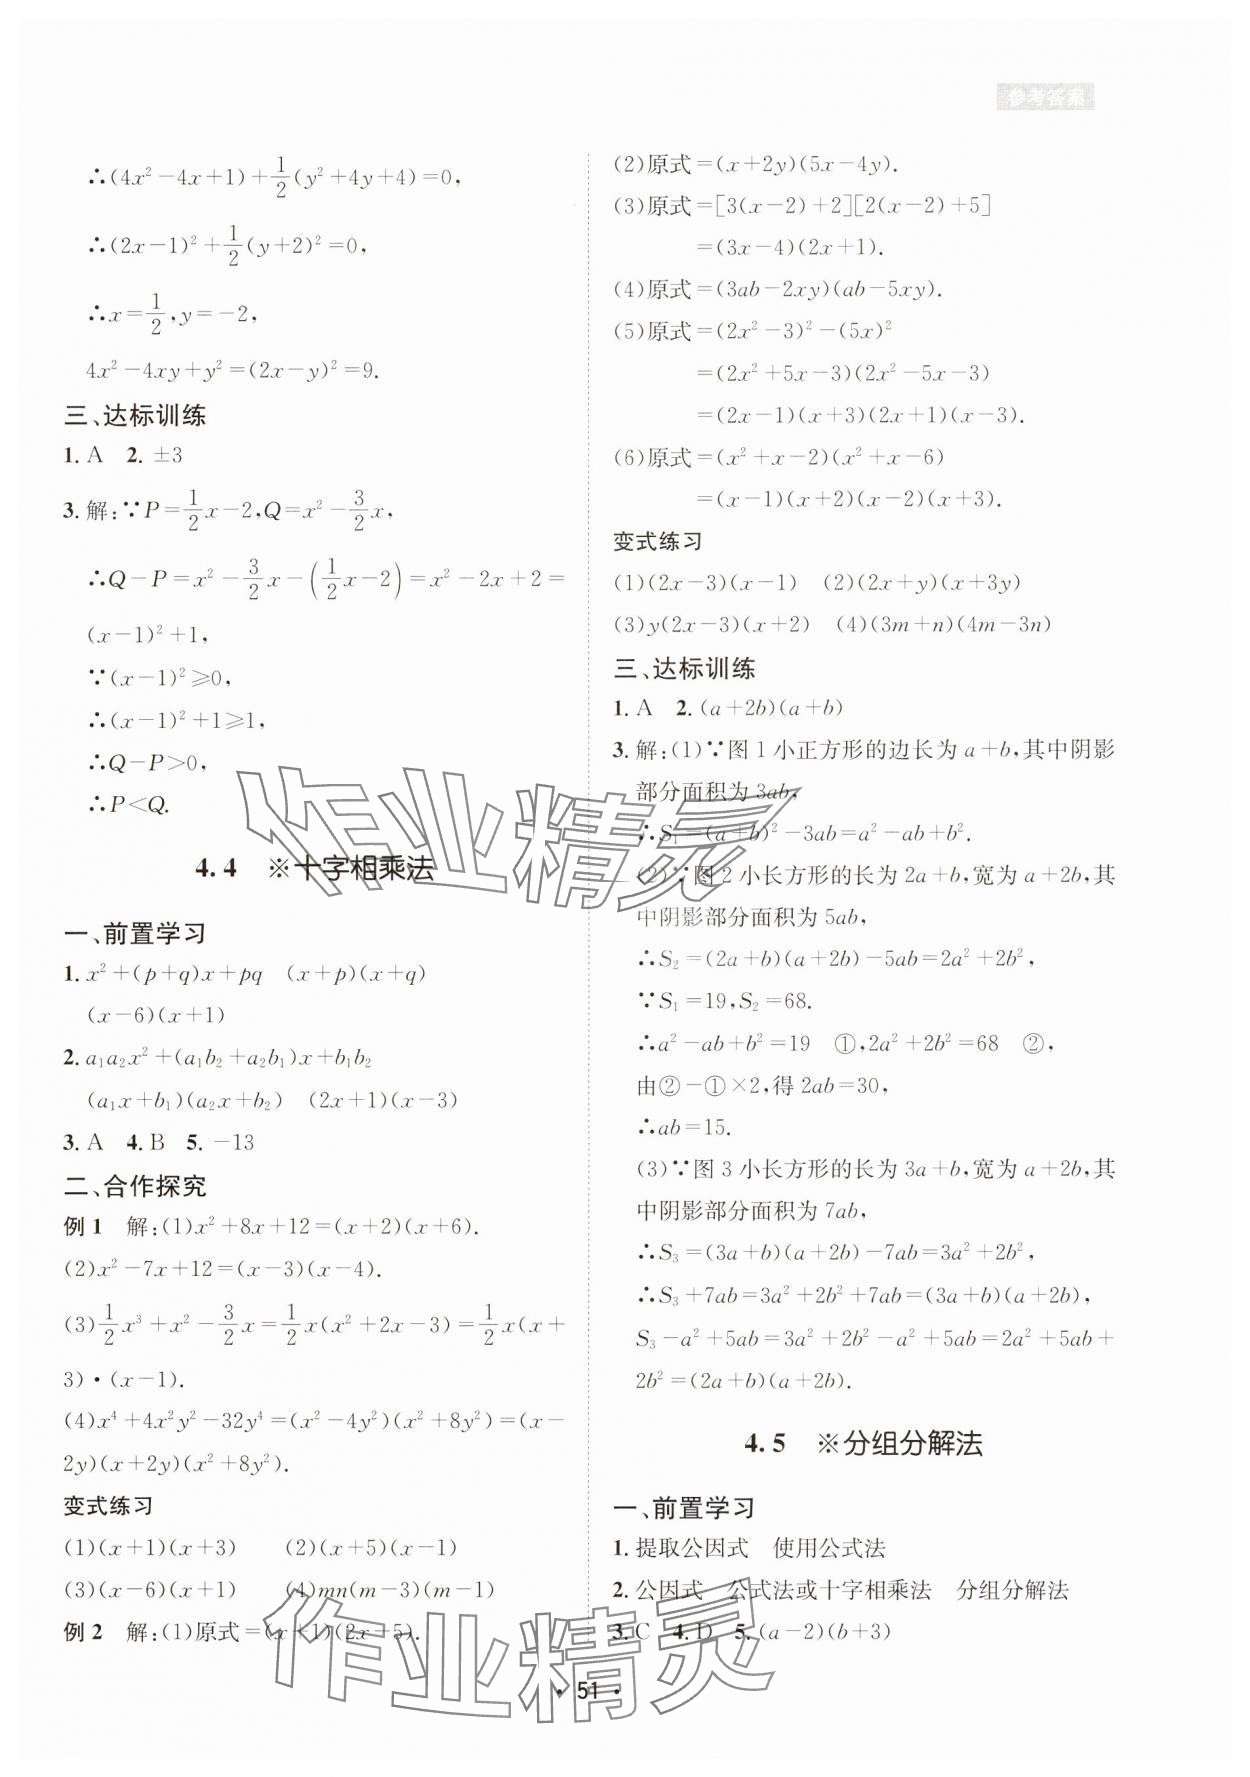 参考答案
∴(4x²-4x+1)+1/2(y²+4y+4)=0,
∴(2x-1)²+1/2(y+2)²=0,
∴x=1/2,y=-2,
4x²-4xy+y²=(2x-y)²=9.
三、达标训练
1. A 2. ±3
3. 解:∵P=1/2x-2,Q=x²-3/2x,
∴Q-P=x²-3/2x-(1/2x-2)=x²-2x+2=
(x-1)²+1,
∵(x-1)²≥0,
∴(x-1)²+1≥1,
∴Q-P>0,
∴P<Q.
4.4 ※十字相乘法
一、前置学习
1. x²+(p+q)x+pq (x+p)(x+q)
(x-6)(x+1)
2. a₁a₂x²+(a₁b₂+a₂b₁)x+b₁b₂
(a₁x+b₁)(a₂x+b₂) (2x+1)(x-3)
3. A 4. B 5. -13
二、合作探究
例1 解:(1)x²+8x+12=(x+2)(x+6).
(2)x²-7x+12=(x-3)(x-4).
(3)1/2x³+x²-3/2x=1/2x(x²+2x-3)=1/2x(x+
3)·(x-1).
(4)x⁴+4x²y²-32y⁴=(x²-4y²)(x²+8y²)=(x-
2y)(x+2y)(x²+8y²).
变式练习
(1)(x+1)(x+3) (2)(x+5)(x-1)
(3)(x-6)(x+1) (4)mn(m-3)(m-1)
例2 解:(1)原式=(x+1)(2x+5).
(2)原式=(x+2y)(5x-4y).
(3)原式=[3(x-2)+2][2(x-2)+5]
=(3x-4)(2x+1).
(4)原式=(3ab-2xy)(ab-5xy).
(5)原式=(2x²-3)²-(5x)²
=(2x²+5x-3)(2x²-5x-3)
=(2x-1)(x+3)(2x+1)(x-3).
(6)原式=(x²+x-2)(x²+x-6)
=(x-1)(x+2)(x-2)(x+3).
变式练习
(1)(2x-3)(x-1) (2)(2x+y)(x+3y)
(3)y(2x-3)(x+2) (4)(3m+n)(4m-3n)
三、达标训练
1. A 2. (a+2b)(a+b)
3. 解:(1)∵图1小正方形的边长为a+b,其中阴影
部分面积为3ab,
∴S₁=(a+b)²-3ab=a²-ab+b².
(2)∵图2小长方形的长为2a+b,宽为a+2b,其
中阴影部分面积为5ab,
∴S₂=(2a+b)(a+2b)-5ab=2a²+2b²,
∵S₁=19,S₂=68.
∴a²-ab+b²=19 ①,2a²+2b²=68 ②,
由②-①×2,得2ab=30,
∴ab=15.
(3)∵图3小长方形的长为3a+b,宽为a+2b,其
中阴影部分面积为7ab,
∴S₃=(3a+b)(a+2b)-7ab=3a²+2b²,
∴S₃+7ab=3a²+2b²+7ab=(3a+b)(a+2b),
S₃-a²+5ab=3a²+2b²-a²+5ab=2a²+5ab+
2b²=(2a+b)(a+2b).
4.5 ※分组分解法
一、前置学习
1. 提取公因式 使用公式法
2. 公因式 公式法或十字相乘法 分组分解法
3. C 4. D 5. (a-2)(b+3)
·51·
作业精灵
作业精灵